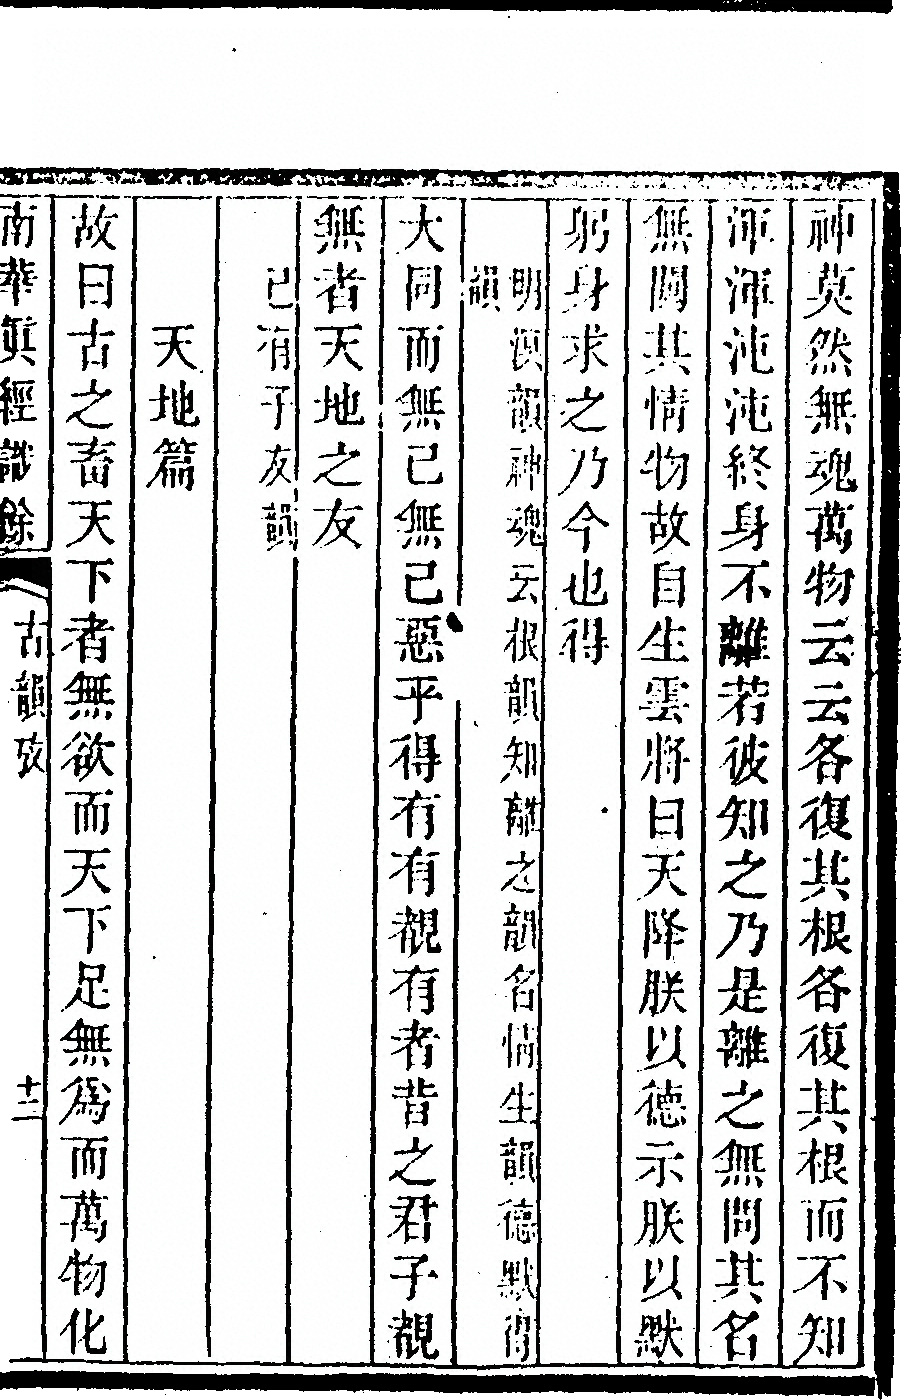 神莫然無魂萬物云云各復其根各復其根而不知
渾渾沌沌終身不離若彼知之乃是離之無問其名
無闚其情物故自生雲將曰天降朕以德示朕以默
躬身求之乃今也得
明溟韻神魂云根韻知離之韻名情生韻德默得
韻
大同而無己無己惡乎得有有覩有者昔之君子覩
無者天地之友
己有子友韻
天地篇
故曰古之畜天下者無欲而天下足無爲而萬物化
南華眞經識餘
古韻攷
十二